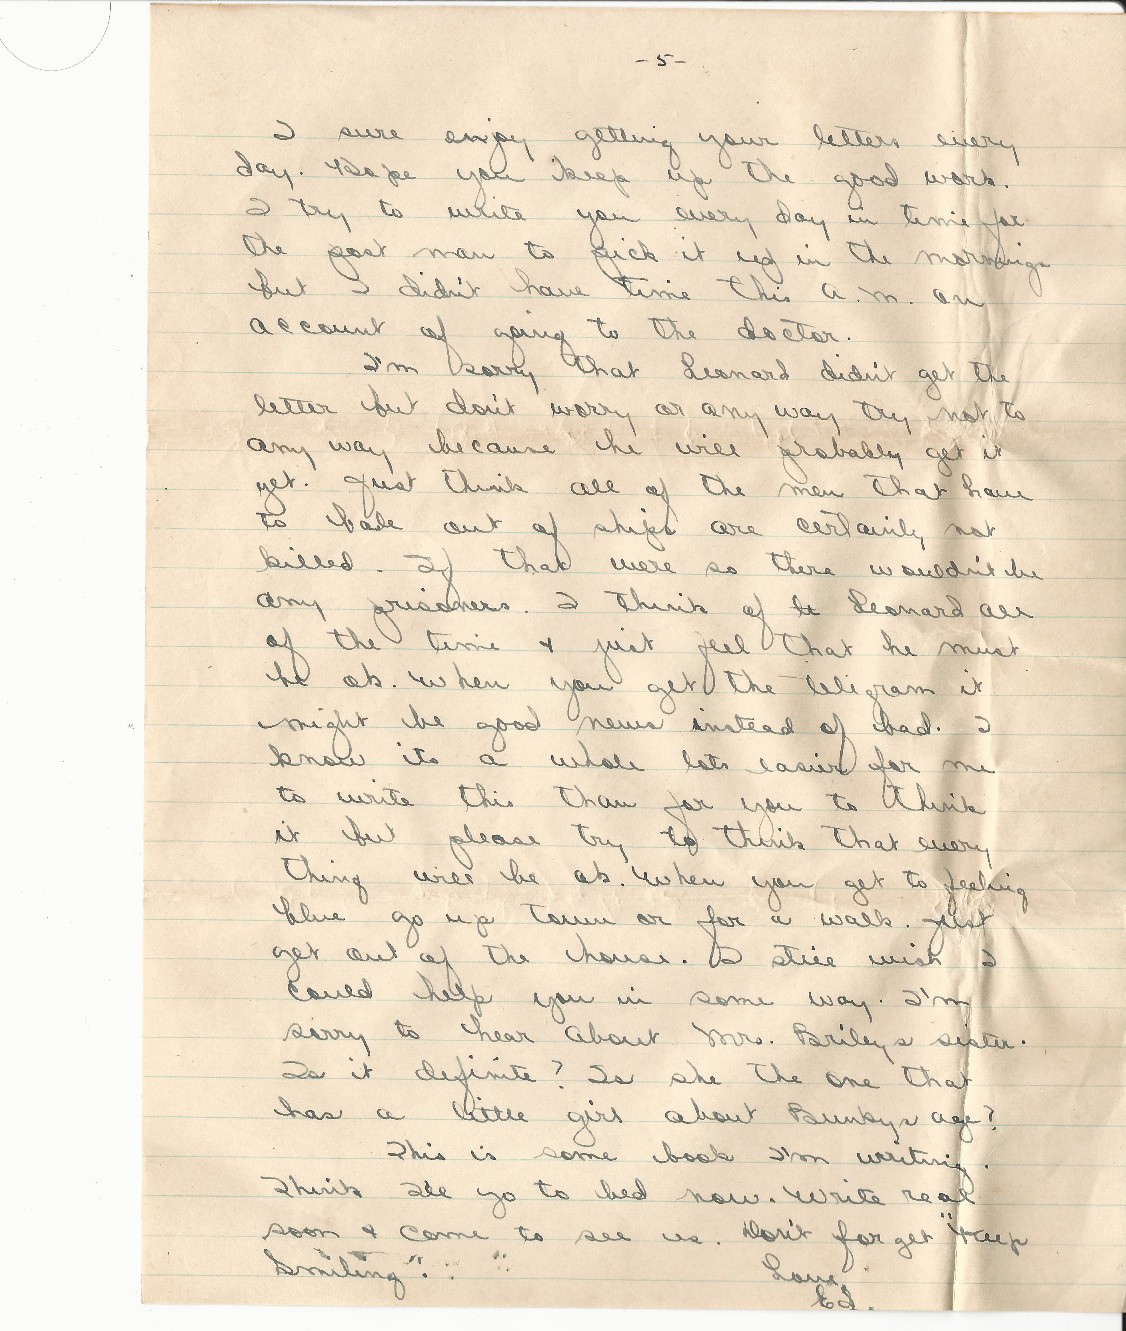 -5-
I sure enjoy getting your letters every
day. Hope you keep up the good work.
I try to write you every day in time for
the post man to pick it up in the mornings
but I didn't have time this A.M. on
account of going to the doctor.
I'm sorry that Leonard didn't get the
letter but don't worry or any way try not to
any way because he will probably get it
yet. Just think all of the men that have
to bale out of ships are certainly not
killed. If that were so there wouldn't be
any prisoners. I think of Leonard all
of the time & just feel that he must
be ok. When you get the telegram it
might be good news instead of bad. I
know its a whole lots easier for me
to write this than for you to think
it but please try to think that every
thing will be ok. When you get to feeling
blue go up town or for a walk. Just
get out of the house. I still wish I
could help you in some way. I'm
sorry to hear about Mrs. Brileys sister.
Is it definite? Is she the one that
has a little girl about Bunkys age?
This is some book I'm writing.
Think I'll go to bed now. Write real
soon & come to see us. Don't forget "Keep
Smiling".
Love,
Ed.